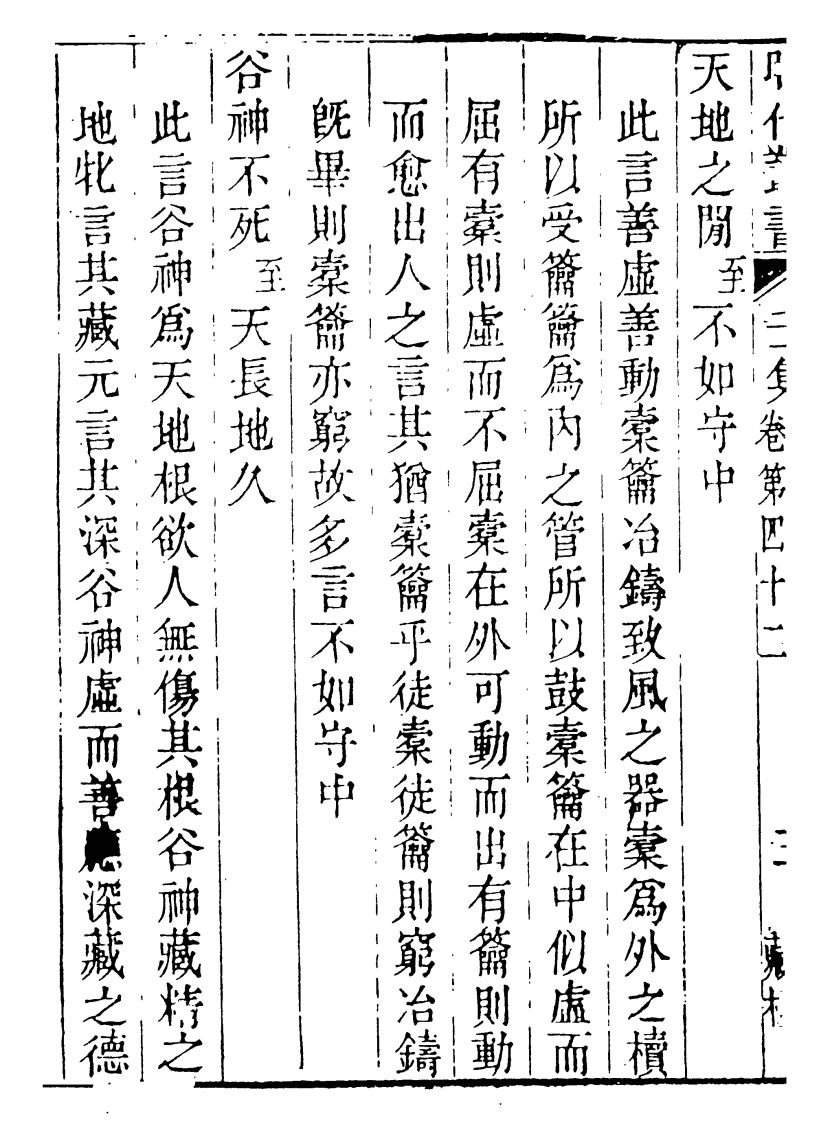 二集卷第四十二
天地之閒至不如守中
此言善虛善動橐籥冶鑄致風之器橐爲外之櫝
所以受籥籥爲內之管所以鼓橐籥在中似虛而
屈有橐則虛而不屈橐在外可動而出有籥則動
而愈出人之言其猶橐籥乎徒橐徒籥則窮冶鑄
旣畢則橐籥亦窮故多言不如守中
谷神不死至天長地久
此言谷神爲天地根欲人無傷其根谷神藏精之
地牝言其藏元言其深谷神虛而善應深藏之德